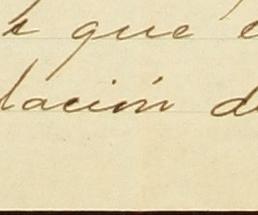 que
lación d